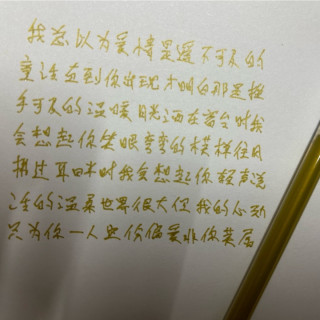 我总以为爱情是遥不可及的
童话直到你出现才明白那是触
手可及的温暖月光洒在窗台时我
会想起你笑眼弯弯的模样任风
拂过耳畔时我会想起你轻声说
话的温柔世界很大但我的心动
只为你一人这份偏爱非你莫属